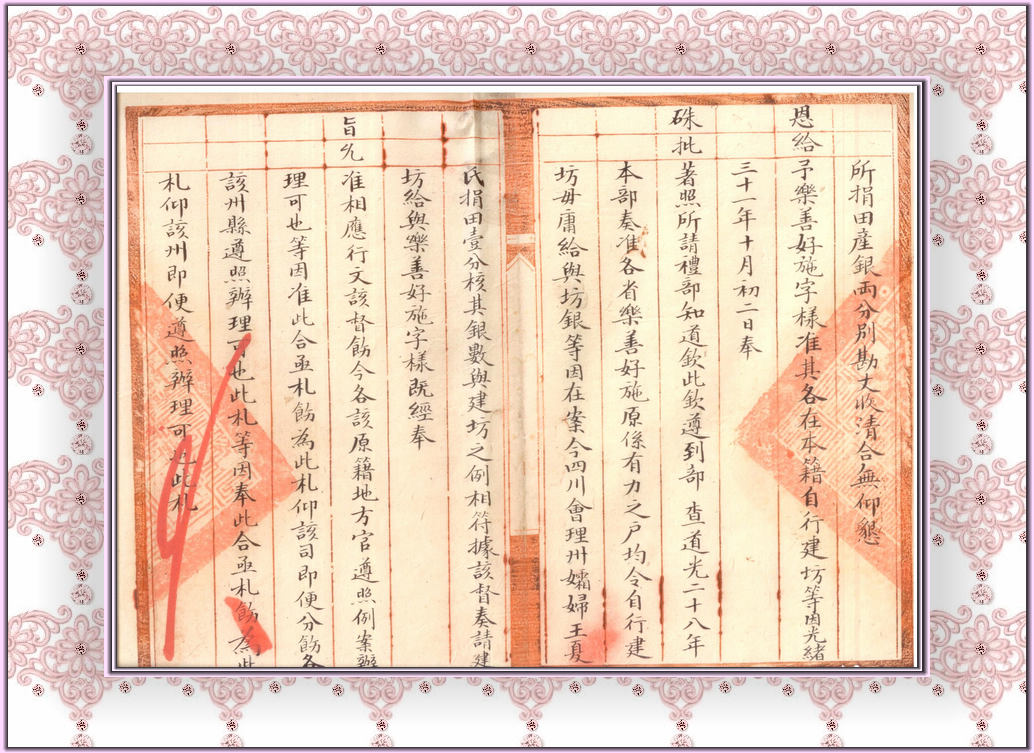 所捐田產銀両分別勘丈收清合無仰懇
恩給予樂善好施字樣准其各在本籍自行建坊等因光緒
三十一年十月初二日奉
硃批著照所請禮部知道欽此欽遵到部 查道光二十八年
本部奏准各省樂善好施原係有力之戶均令自行建
坊毋庸給與坊銀等因在案今四川會理州孀婦王夏
氏捐田壹分核其銀數與建坊之例相符據該督奏請建
坊給與樂善好施字樣既經奉
旨允准相應行文該督飭令各該原籍地方官遵照例案辦
理可也等因准此合亟札飭為此札仰該司即便分飭各
該州縣遵照辦理可也此札等因奉此合亟札飭為此
札仰該州即便遵照辦理可也此札